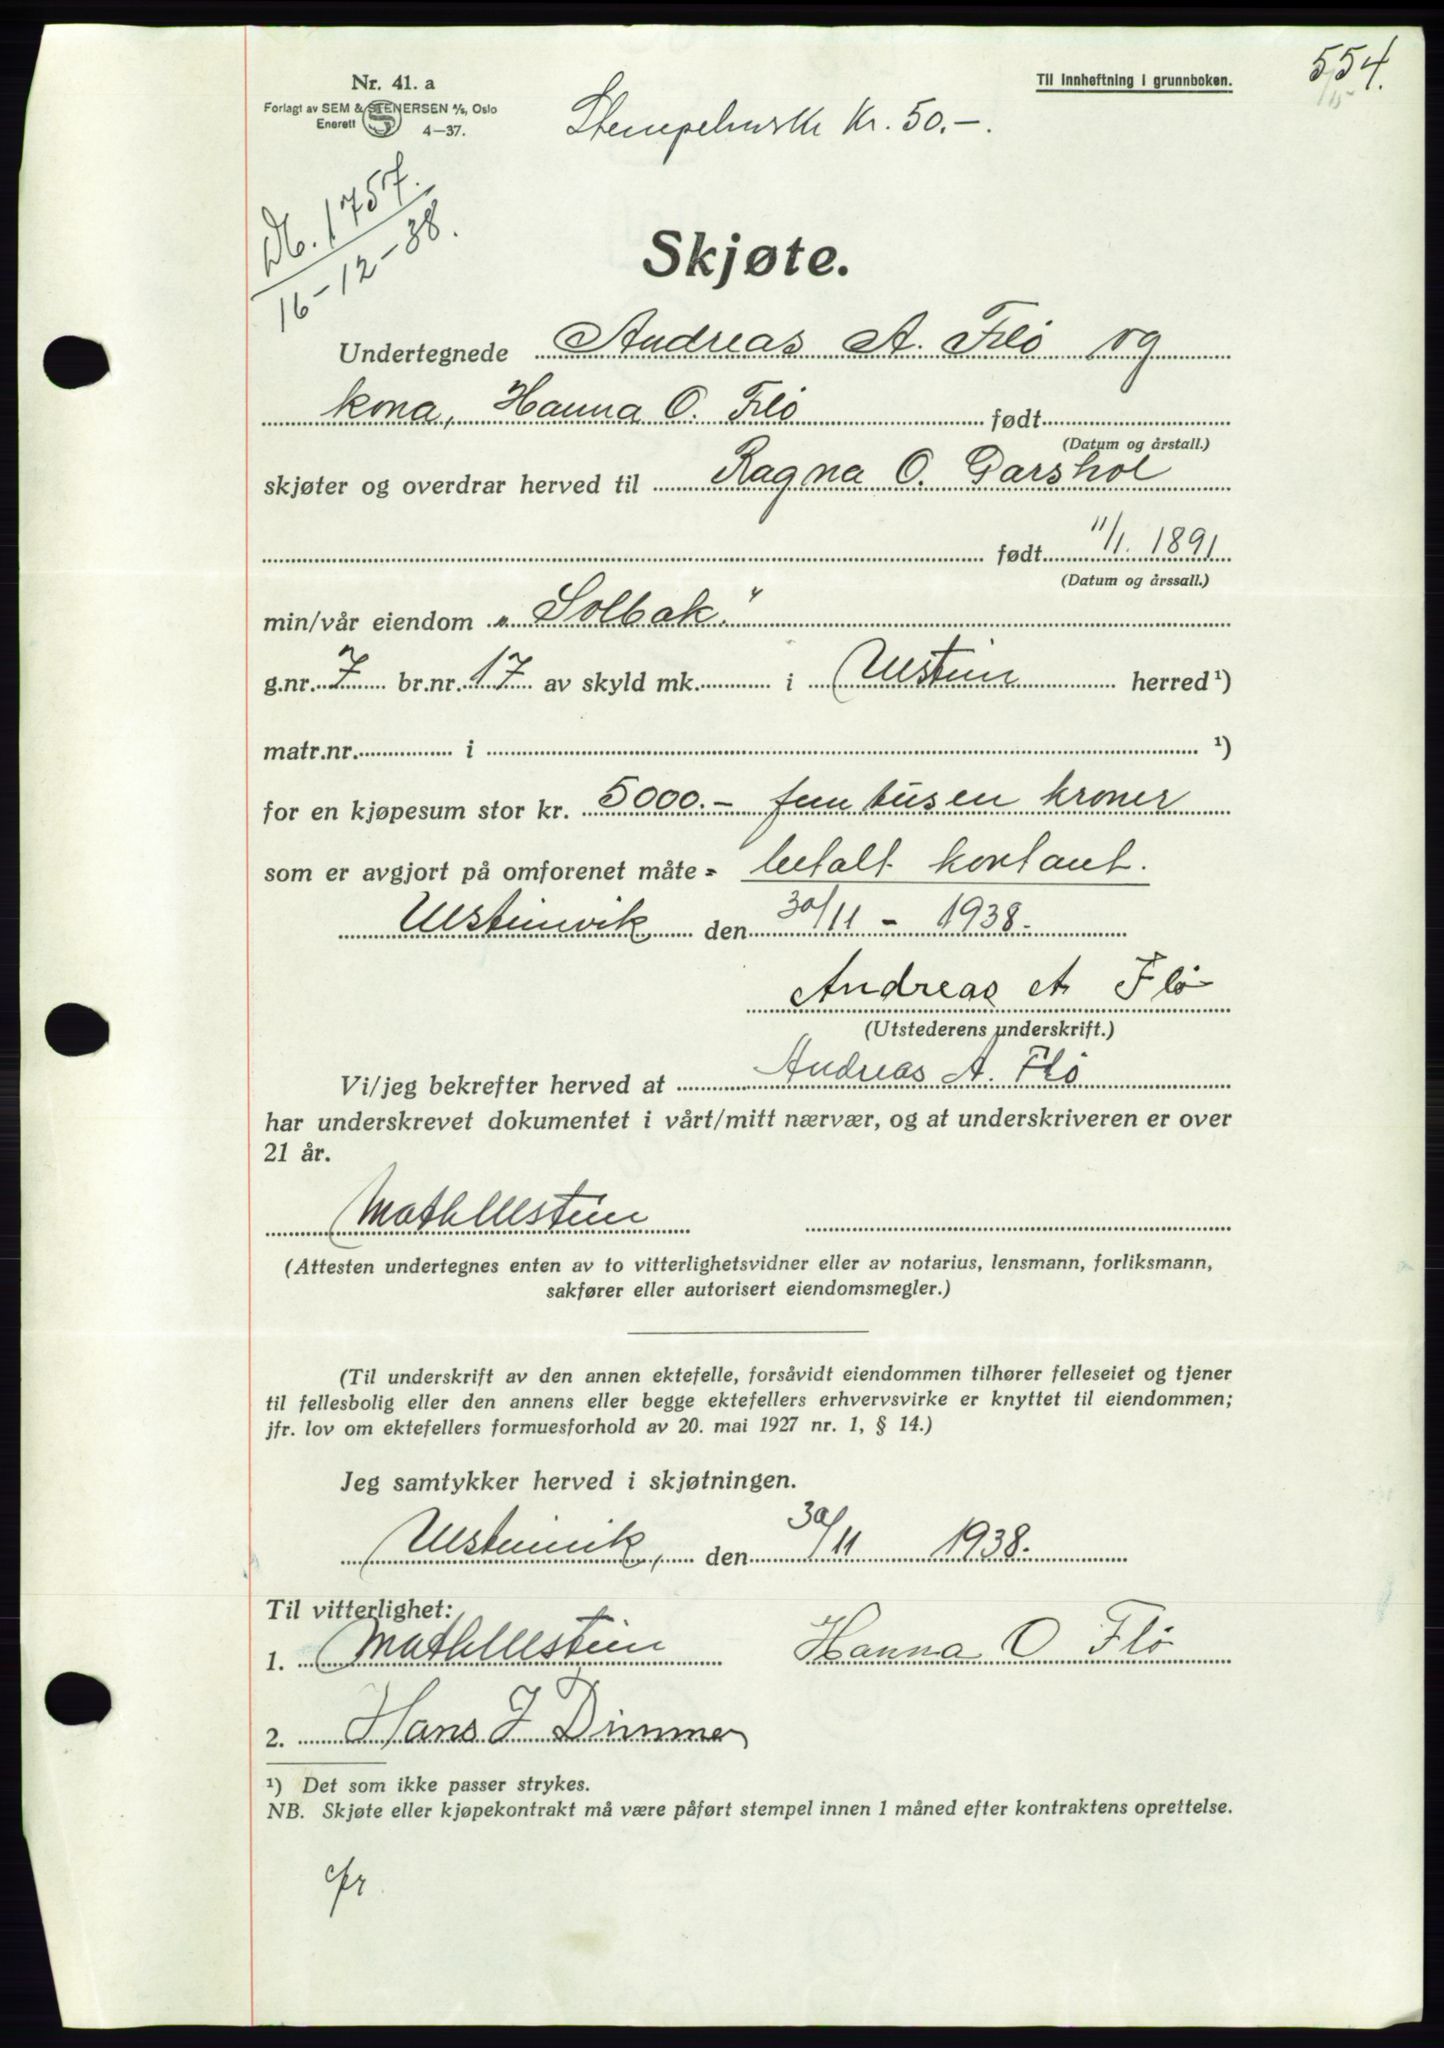 554.
Nr. 41. a
Til innheftning i grunnboken.
Forlagt av SEM & STENERSEN A/S, Oslo
Enerett 4—37.
Kr. 50.-.
Db. 1757.
16-12-38.
Skjøte.
Undertegnede Andreas A. Flø og
kona, Hanna O. Flø født
(Datum og årstall.)
skjøter og overdrar herved til Ragna O. Garshol
født 11/1. 1891
(Datum og årssall.)
min/vår eiendom „Solbak"
g.nr. 7 br.nr. 17 av skyld mk. i Ulstein herred ¹)
matr.nr. i ¹)
for en kjøpesum stor kr. 5000.- femtusen kroner
som er avgjort på omforenet måte - betalt kontant.
Ulsteinvik den 30/11 - 1938.
Andreas A Flø
(Utstederens underskrift.)
Vi/jeg bekrefter herved at Andreas A. Flø
har underskrevet dokumentet i vårt/mitt nærvær, og at underskriveren er over
21 år.
Math Ulstein
(Attesten undertegnes enten av to vitterlighetsvidner eller av notarius, lensmann, forliksmann,
sakfører eller autorisert eiendomsmegler.)
(Til underskrift av den annen ektefelle, forsåvidt eiendommen tilhører felleseiet og tjener
til fellesbolig eller den annens eller begge ektefellers erhvervsvirke er knyttet til eiendommen;
jfr. lov om ektefellers formuesforhold av 20. mai 1927 nr. 1, § 14.)
Jeg samtykker herved i skjøtningen.
Ulsteinvik, den 30/11 1938.
Til vitterlighet:
1. Math Ulstein Hanna O Flø
2. Hans J Dimmen
¹) Det som ikke passer strykes.
NB. Skjøte eller kjøpekontrakt må være påført stempel innen 1 måned efter kontraktens oprettelse.